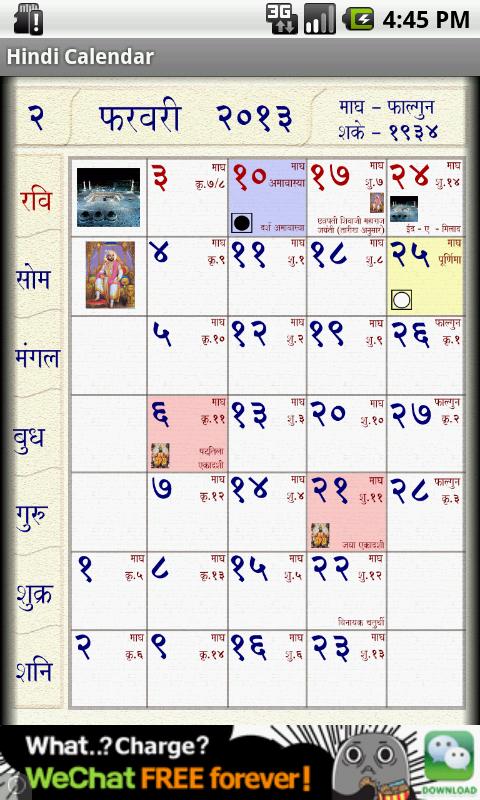 3G
4:45 PM
Hindi Calendar
२ फरवरी २०१३
माघ - फाल्गुन
शके - १९३४
रवि
३ माघ कृ.७/८
१० माघ अमावास्या
दर्श अमावास्या
१७ माघ शु.७
छत्रपती शिवाजी महाराज
जयंती (तारीख अनुसार)
२४ माघ शु.१४
ईद - ए - मिलाद
सोम
४ माघ कृ.९
११ माघ शु.१
१८ माघ शु.८
२५ माघ पूर्णिमा
मंगल
५ माघ कृ.१०
१२ माघ शु.२
१९ माघ शु.९
२६ फाल्गुन कृ.१
बुध
६ माघ कृ.११
षट्तिला
एकादशी
१३ माघ शु.३
२० माघ शु.१०
२७ फाल्गुन कृ.२
गुरु
७ माघ कृ.१२
१४ माघ शु.४
२१ माघ शु.११
जया एकादशी
२८ फाल्गुन कृ.३
शुक्र
१ माघ कृ.५
८ माघ कृ.१३
१५ माघ शु.५
२२ माघ शु.१२
विनायक चतुर्थी
शनि
२ माघ कृ.६
९ माघ कृ.१४
१६ माघ शु.६
२३ माघ शु.१३
What..? Charge?
WeChat FREE forever!
DOWNLOAD